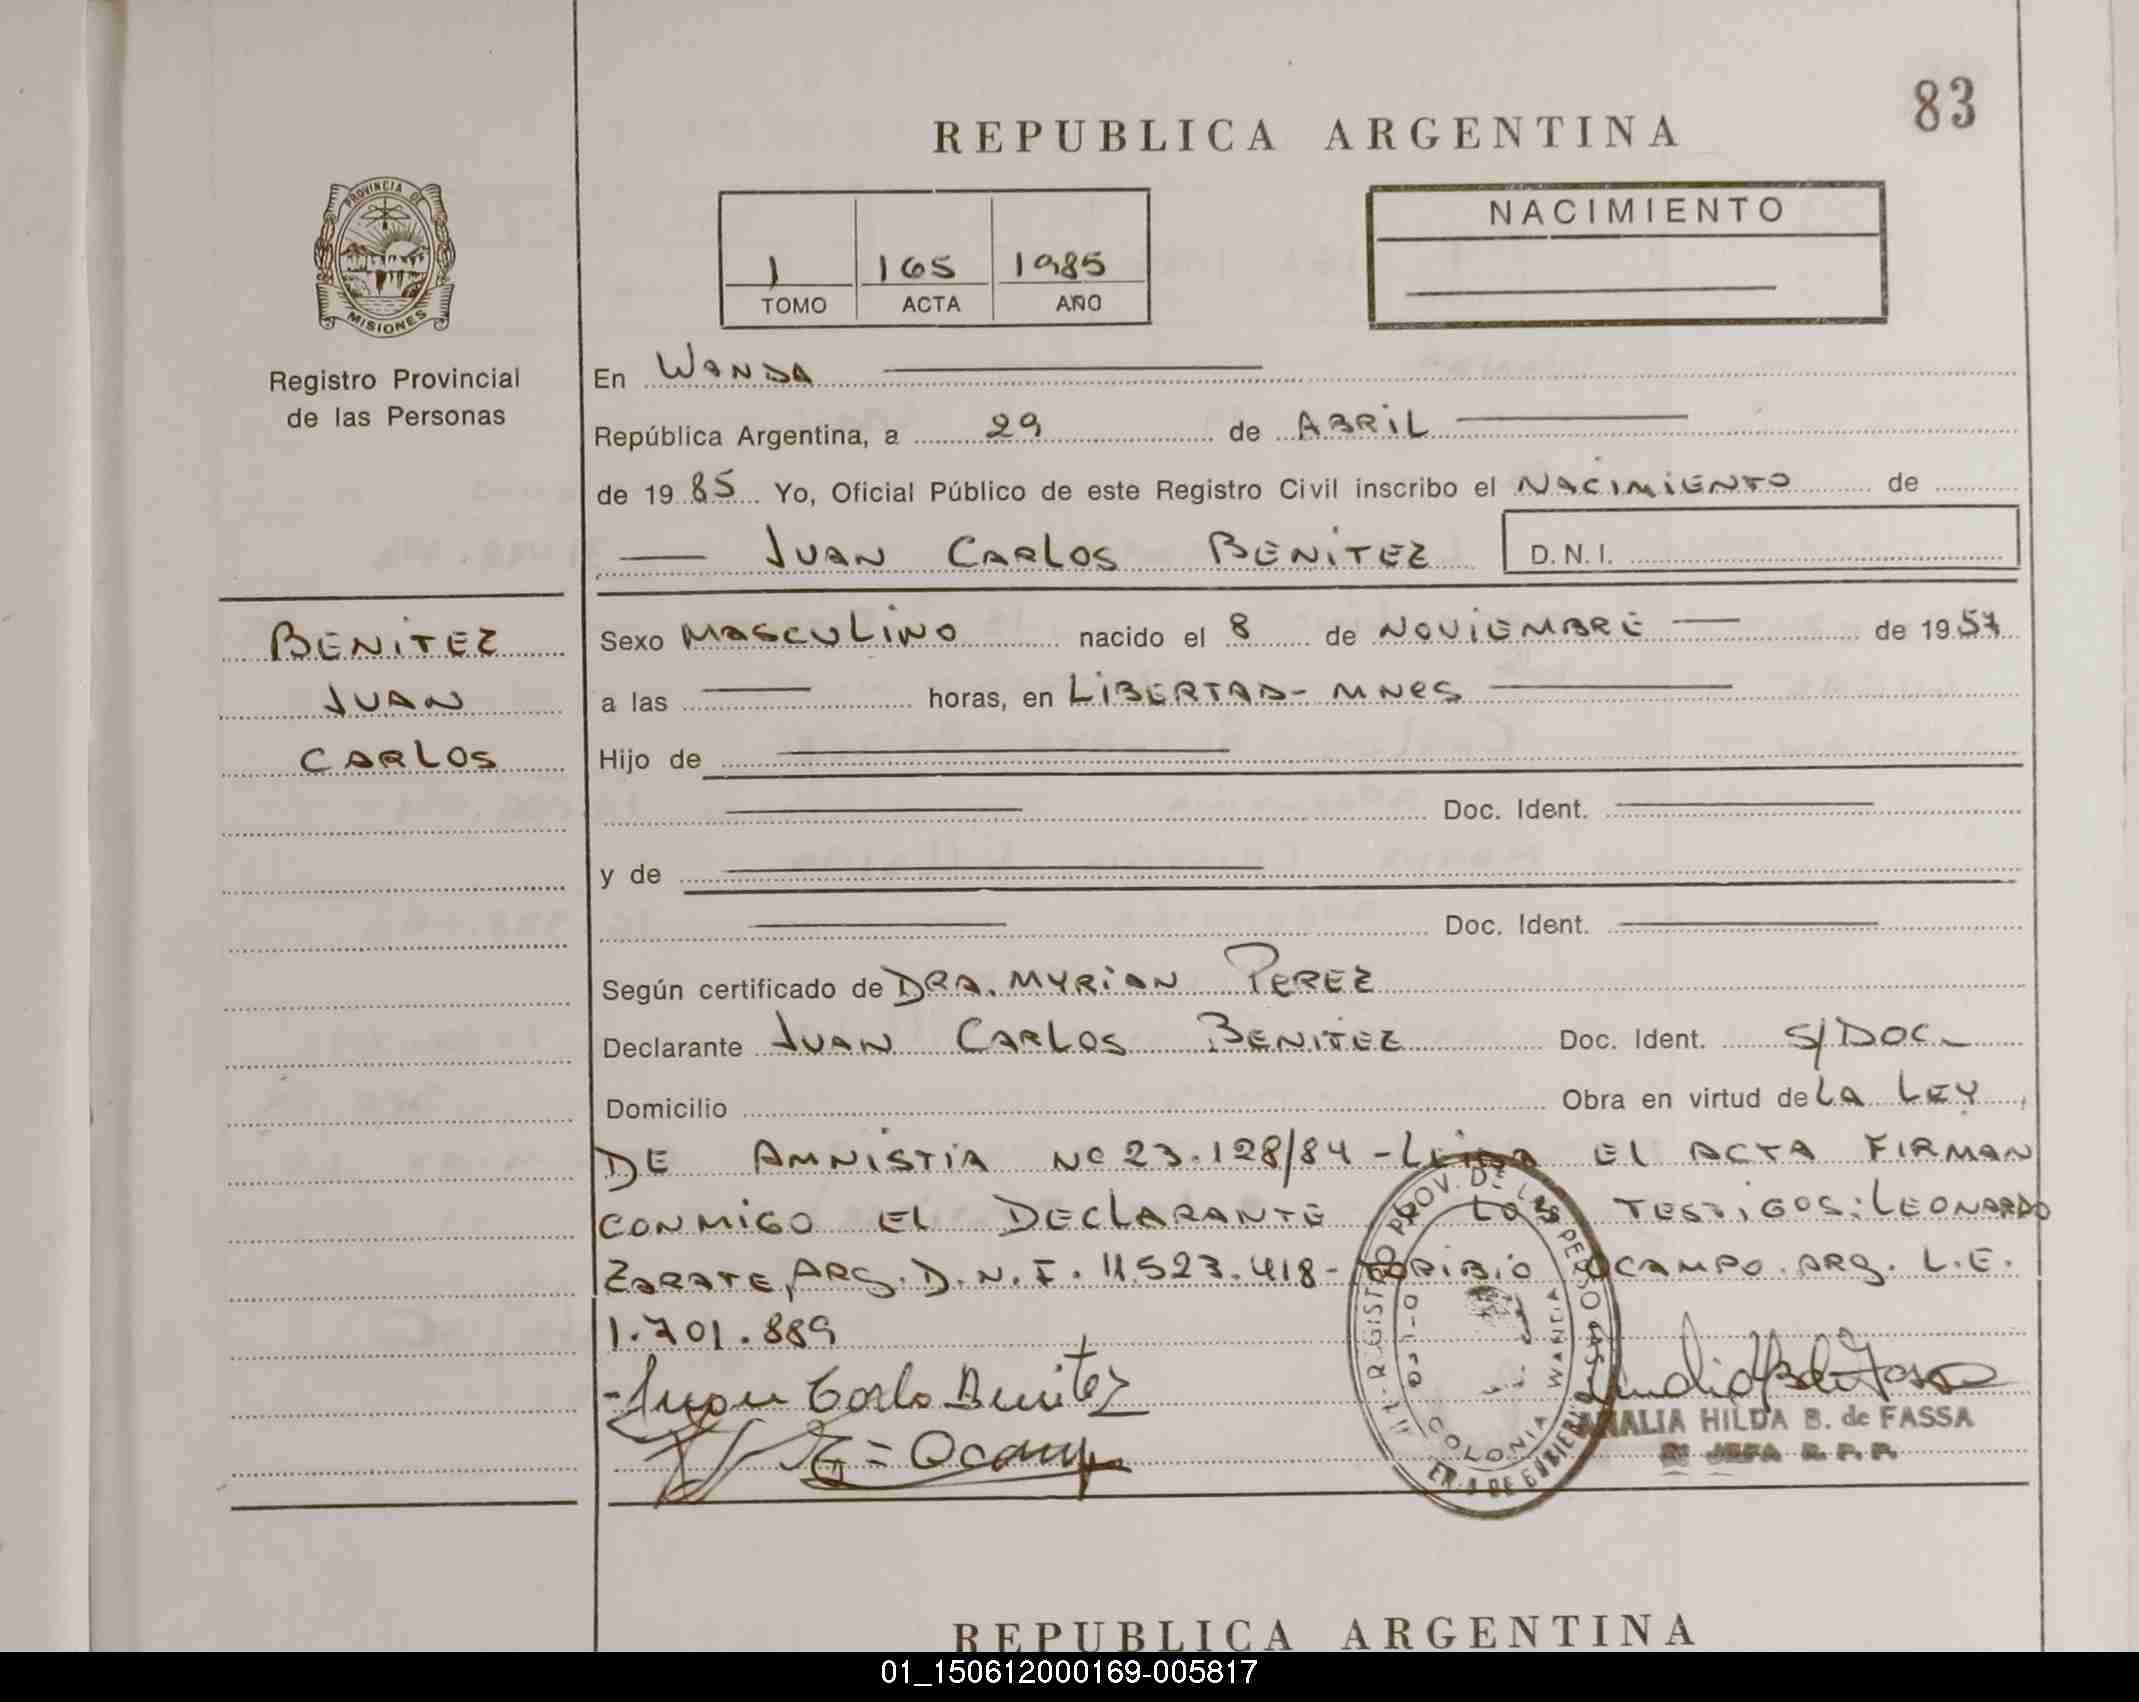 83
REPUBLICA ARGENTINA
PROVINCIA DE
MISIONES
Registro Provincial
de las Personas
1 165 1985
TOMO ACTA AÑO
NACIMIENTO
En WANDA
República Argentina, a 29 de ABRIL
de 1985 Yo, Oficial Público de este Registro Civil inscribo el NACIMIENTO de
JUAN CARLOS BENITEZ D.N.I.
BENITEZ
JUAN
CARLOS
Sexo MASCULINO nacido el 8 de NOVIEMBRE de 1957
a las horas, en LIBERTAD- MNES
Hijo de
Doc. Ident.
y de
Doc. Ident.
Según certificado de DRA. MYRIAN PEREZ
Declarante JUAN CARLOS BENITEZ Doc. Ident. S/DOC_
Domicilio Obra en virtud de LA LEY
DE AMNISTIA Nº 23.128/84 - LEIDA EL ACTA FIRMAN
CONMIGO EL DECLARANTE LOS TESTIGOS: LEONARDO
ZARATE, ARG. D.N.I. 11.523.418- TORIBIO OCAMPO. ARG. L.E.
1.701.889
Juan Carlo Benitez
Ocampo
REGISTRO PROV. DE LAS PERSONAS
COLONIA WANDA
AMALIA HILDA B. de FASSA
JEFA R. P. P.
REPUBLICA ARGENTINA
01_150612000169-005817